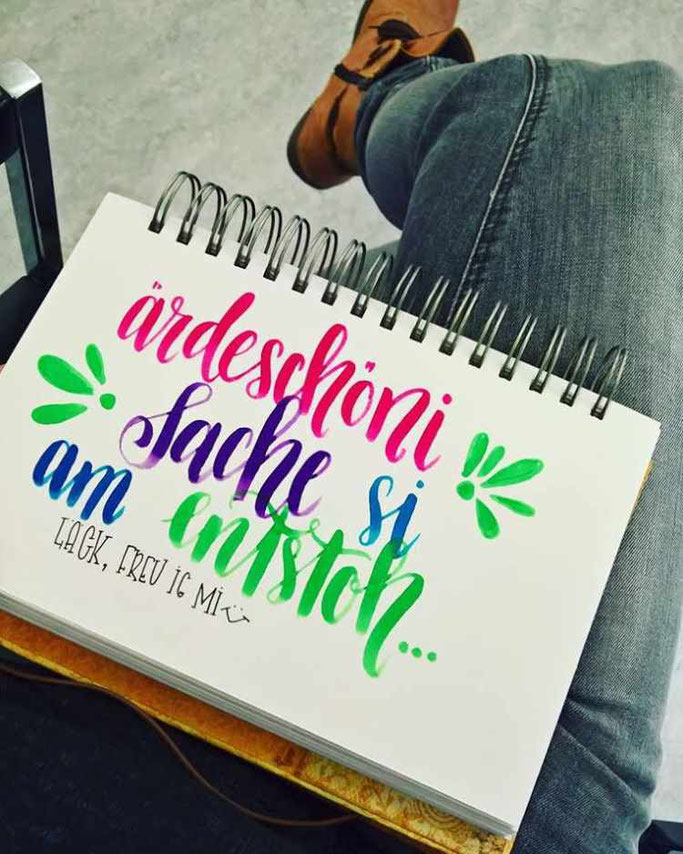 ärdeschöni
Sache si
am entstoh...
LÄGK, FREU IG MI